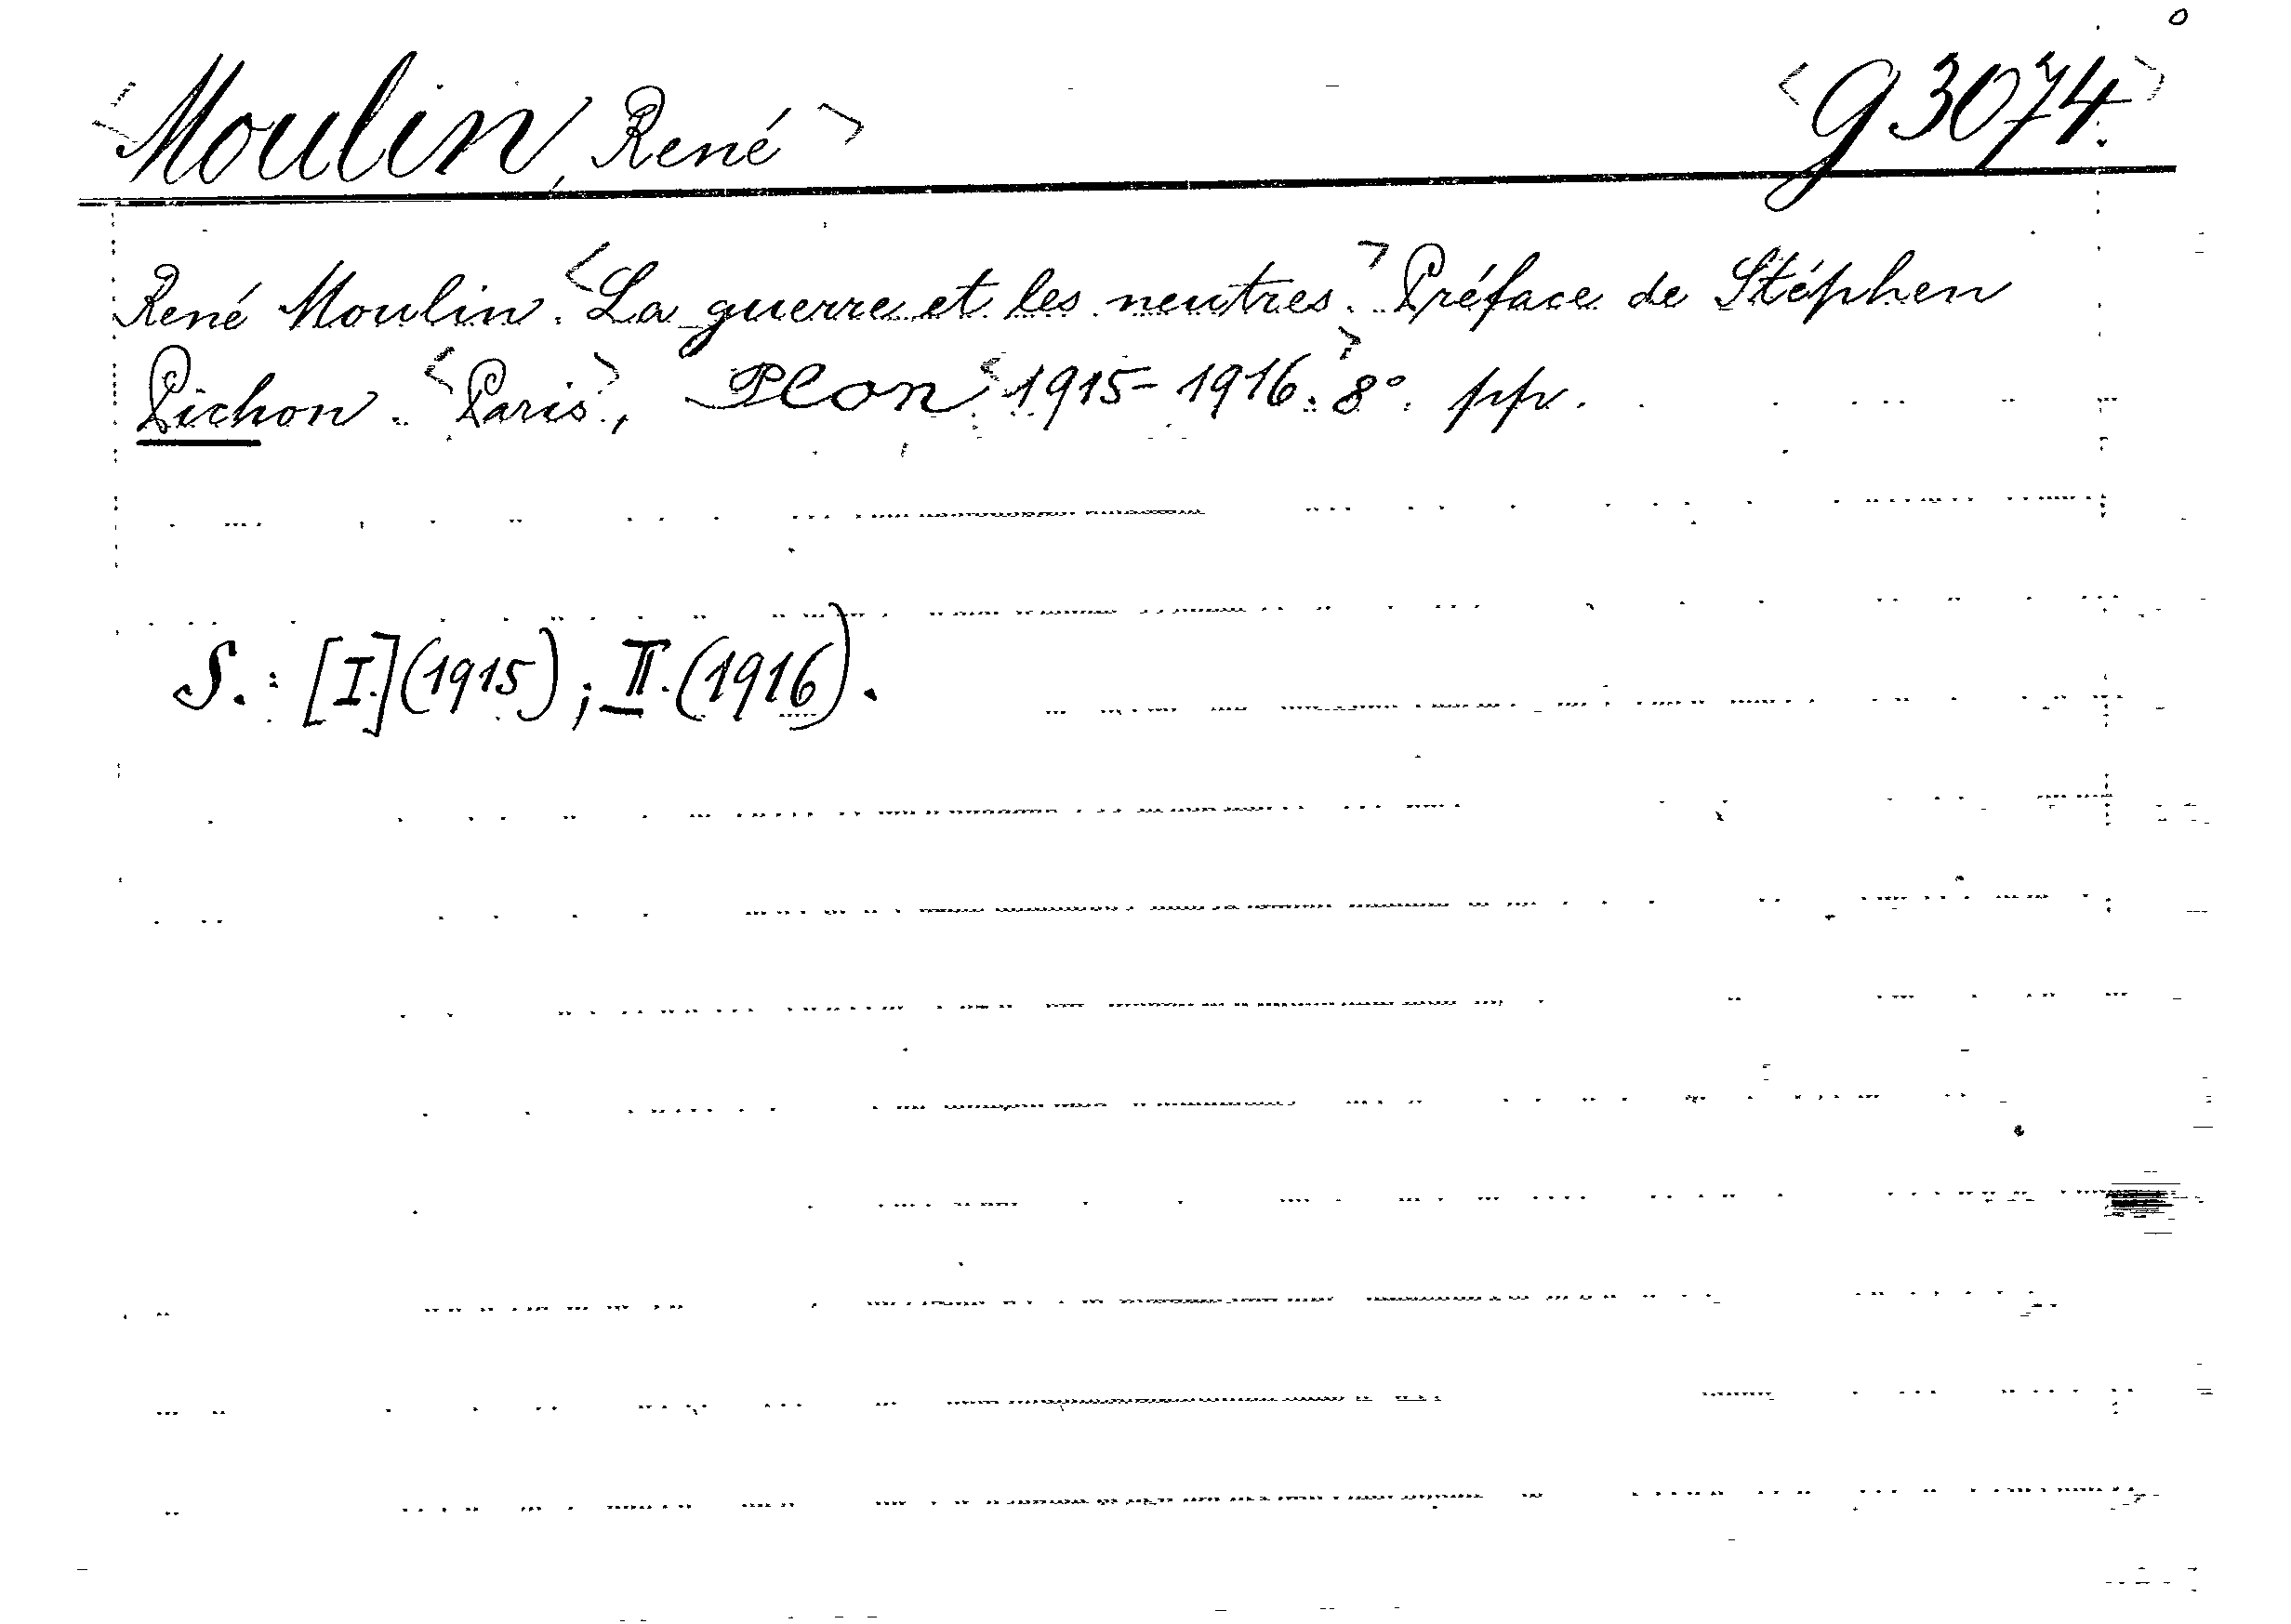 <Moulin, René> <g 3074.>
René Moulin. <La guerre et les neutres.> Préface de Stéphen
Pichon. <Paris>, Plon <1915-1916.> 8°. pp.
S.: [I.] (1915); II. (1916).